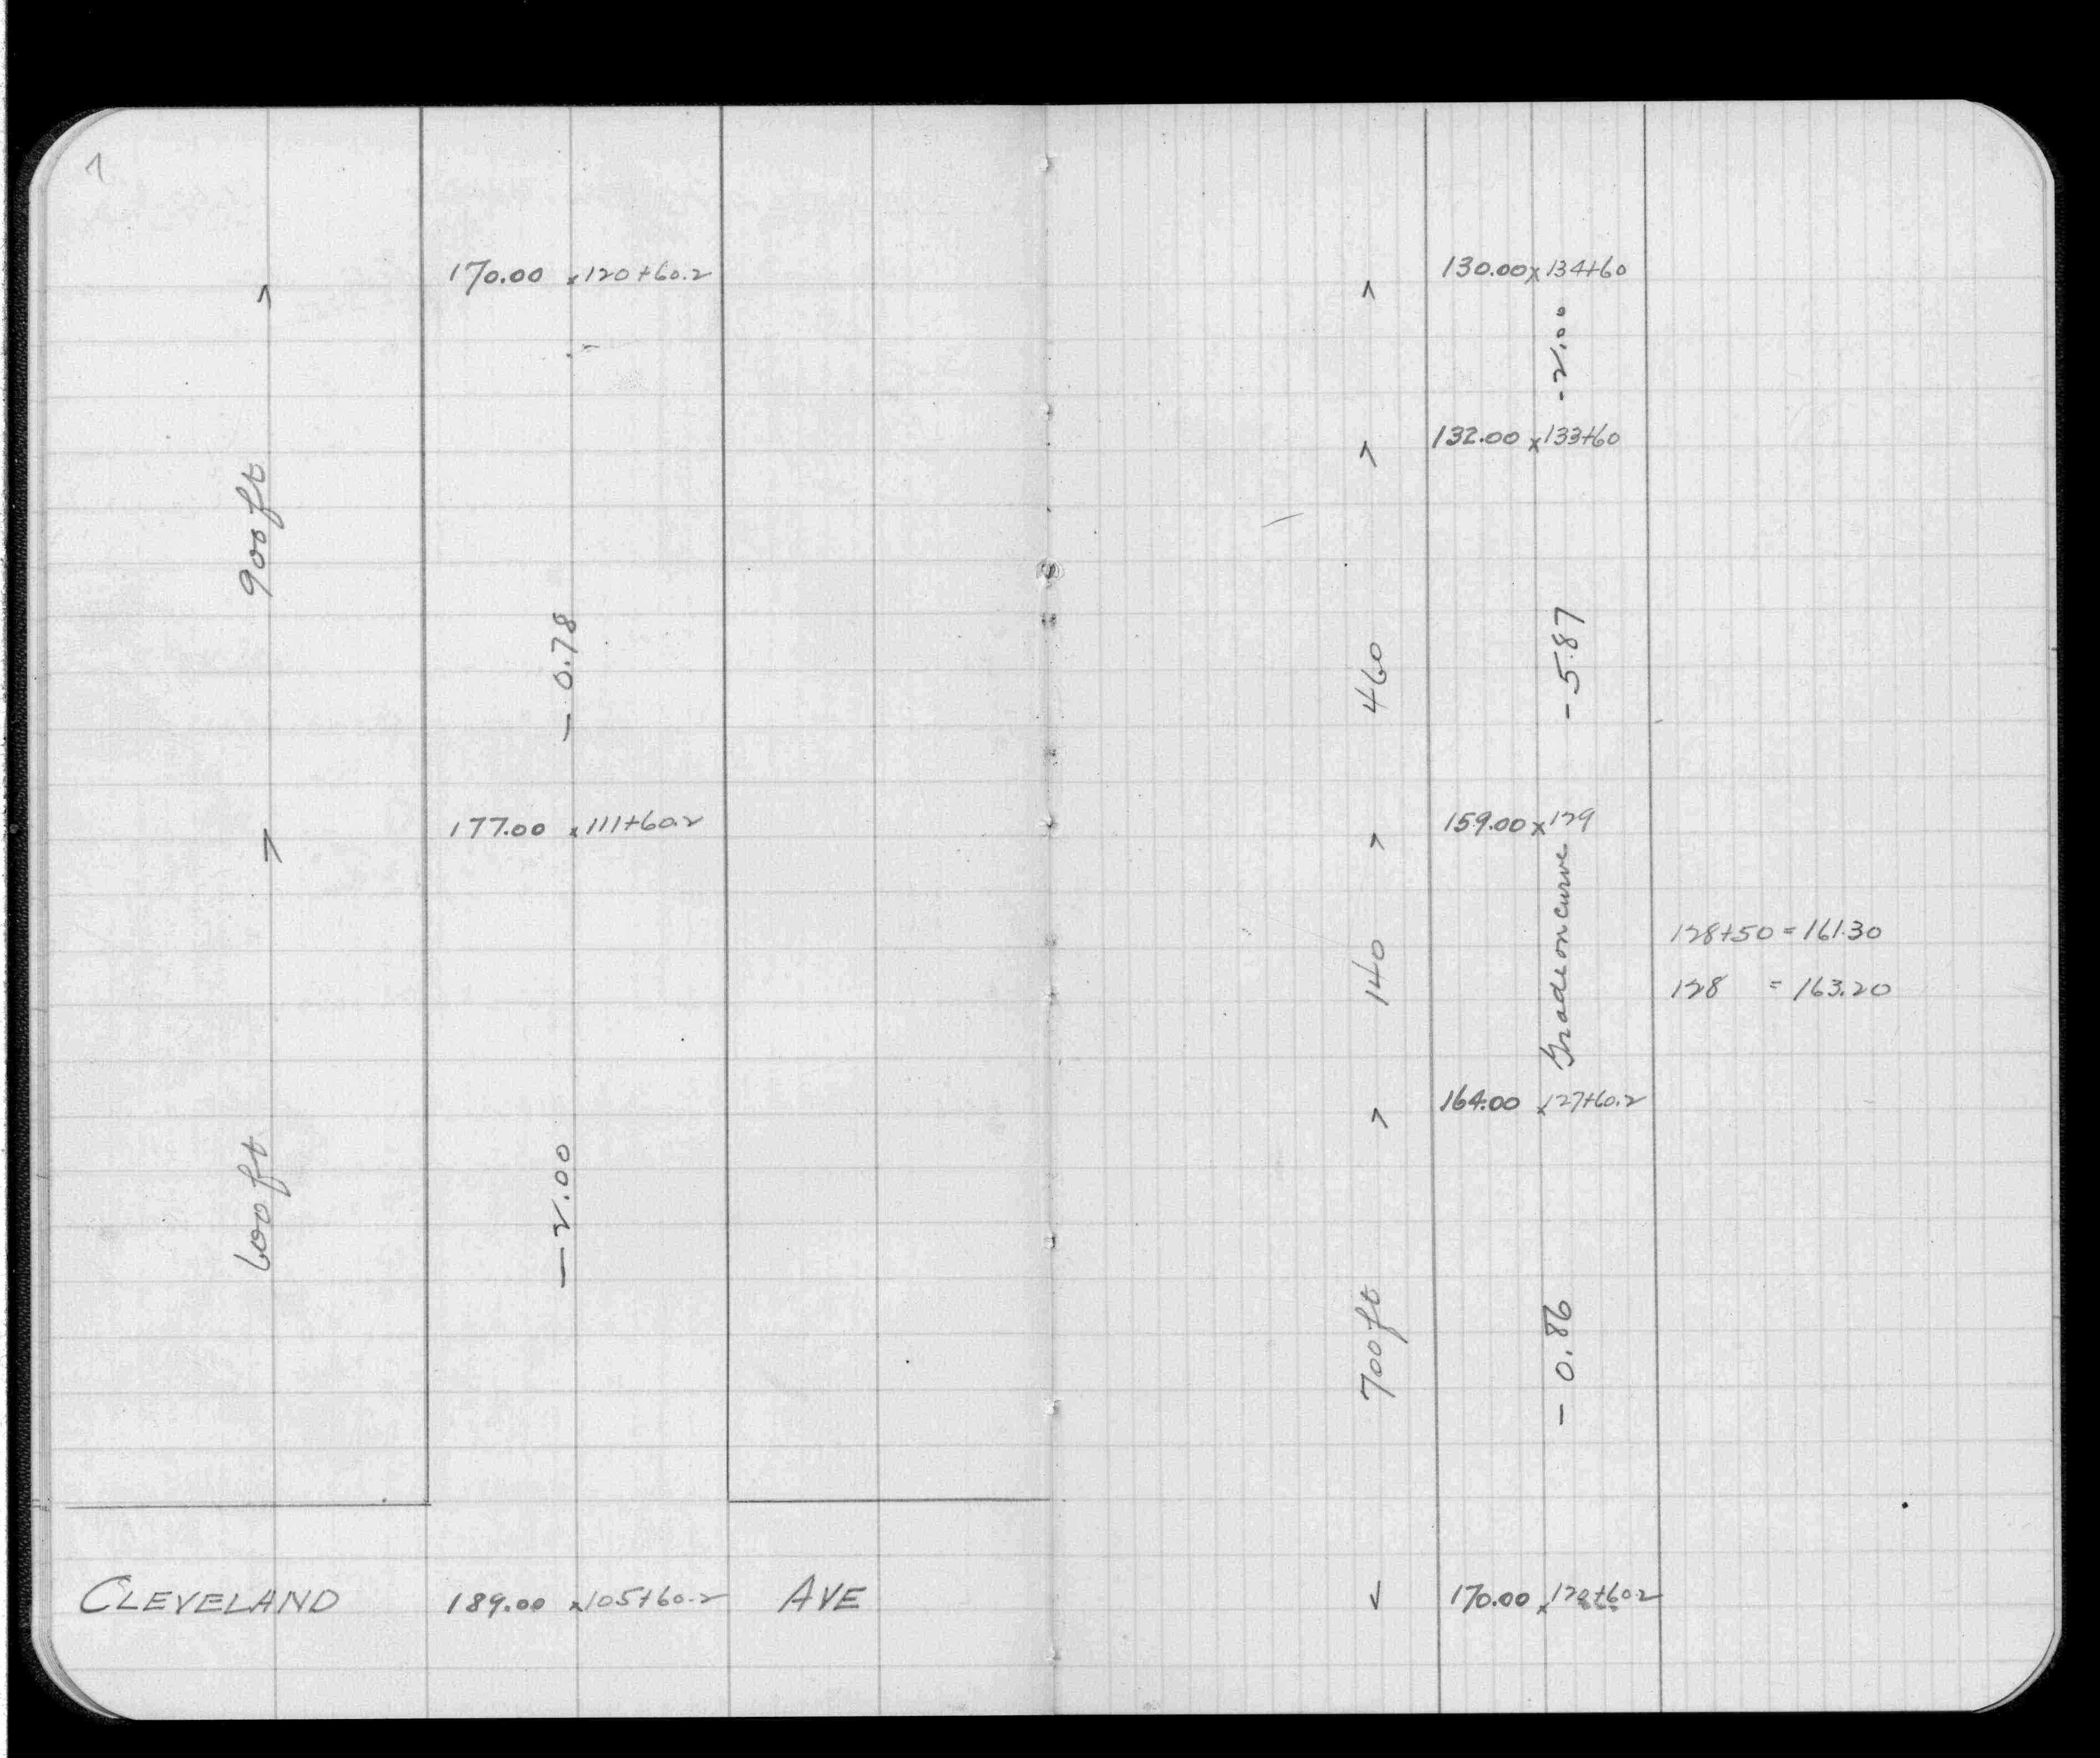 1
170.00 x 120+60.2
900ft
- 0.78
177.00 x 111+60.2
600ft
- 2.00
CLEVELAND 189.00 x 105+60.2 AVE
130.00 x 134+60
-2.00
132.00 x 133+60
460
- 5.87
159.00 x 129
Grade on curve
128+50 = 161.30
140
128 = 163.20
164.00 x 127+60.2
700ft
- 0.86
170.00 x 120+60.2